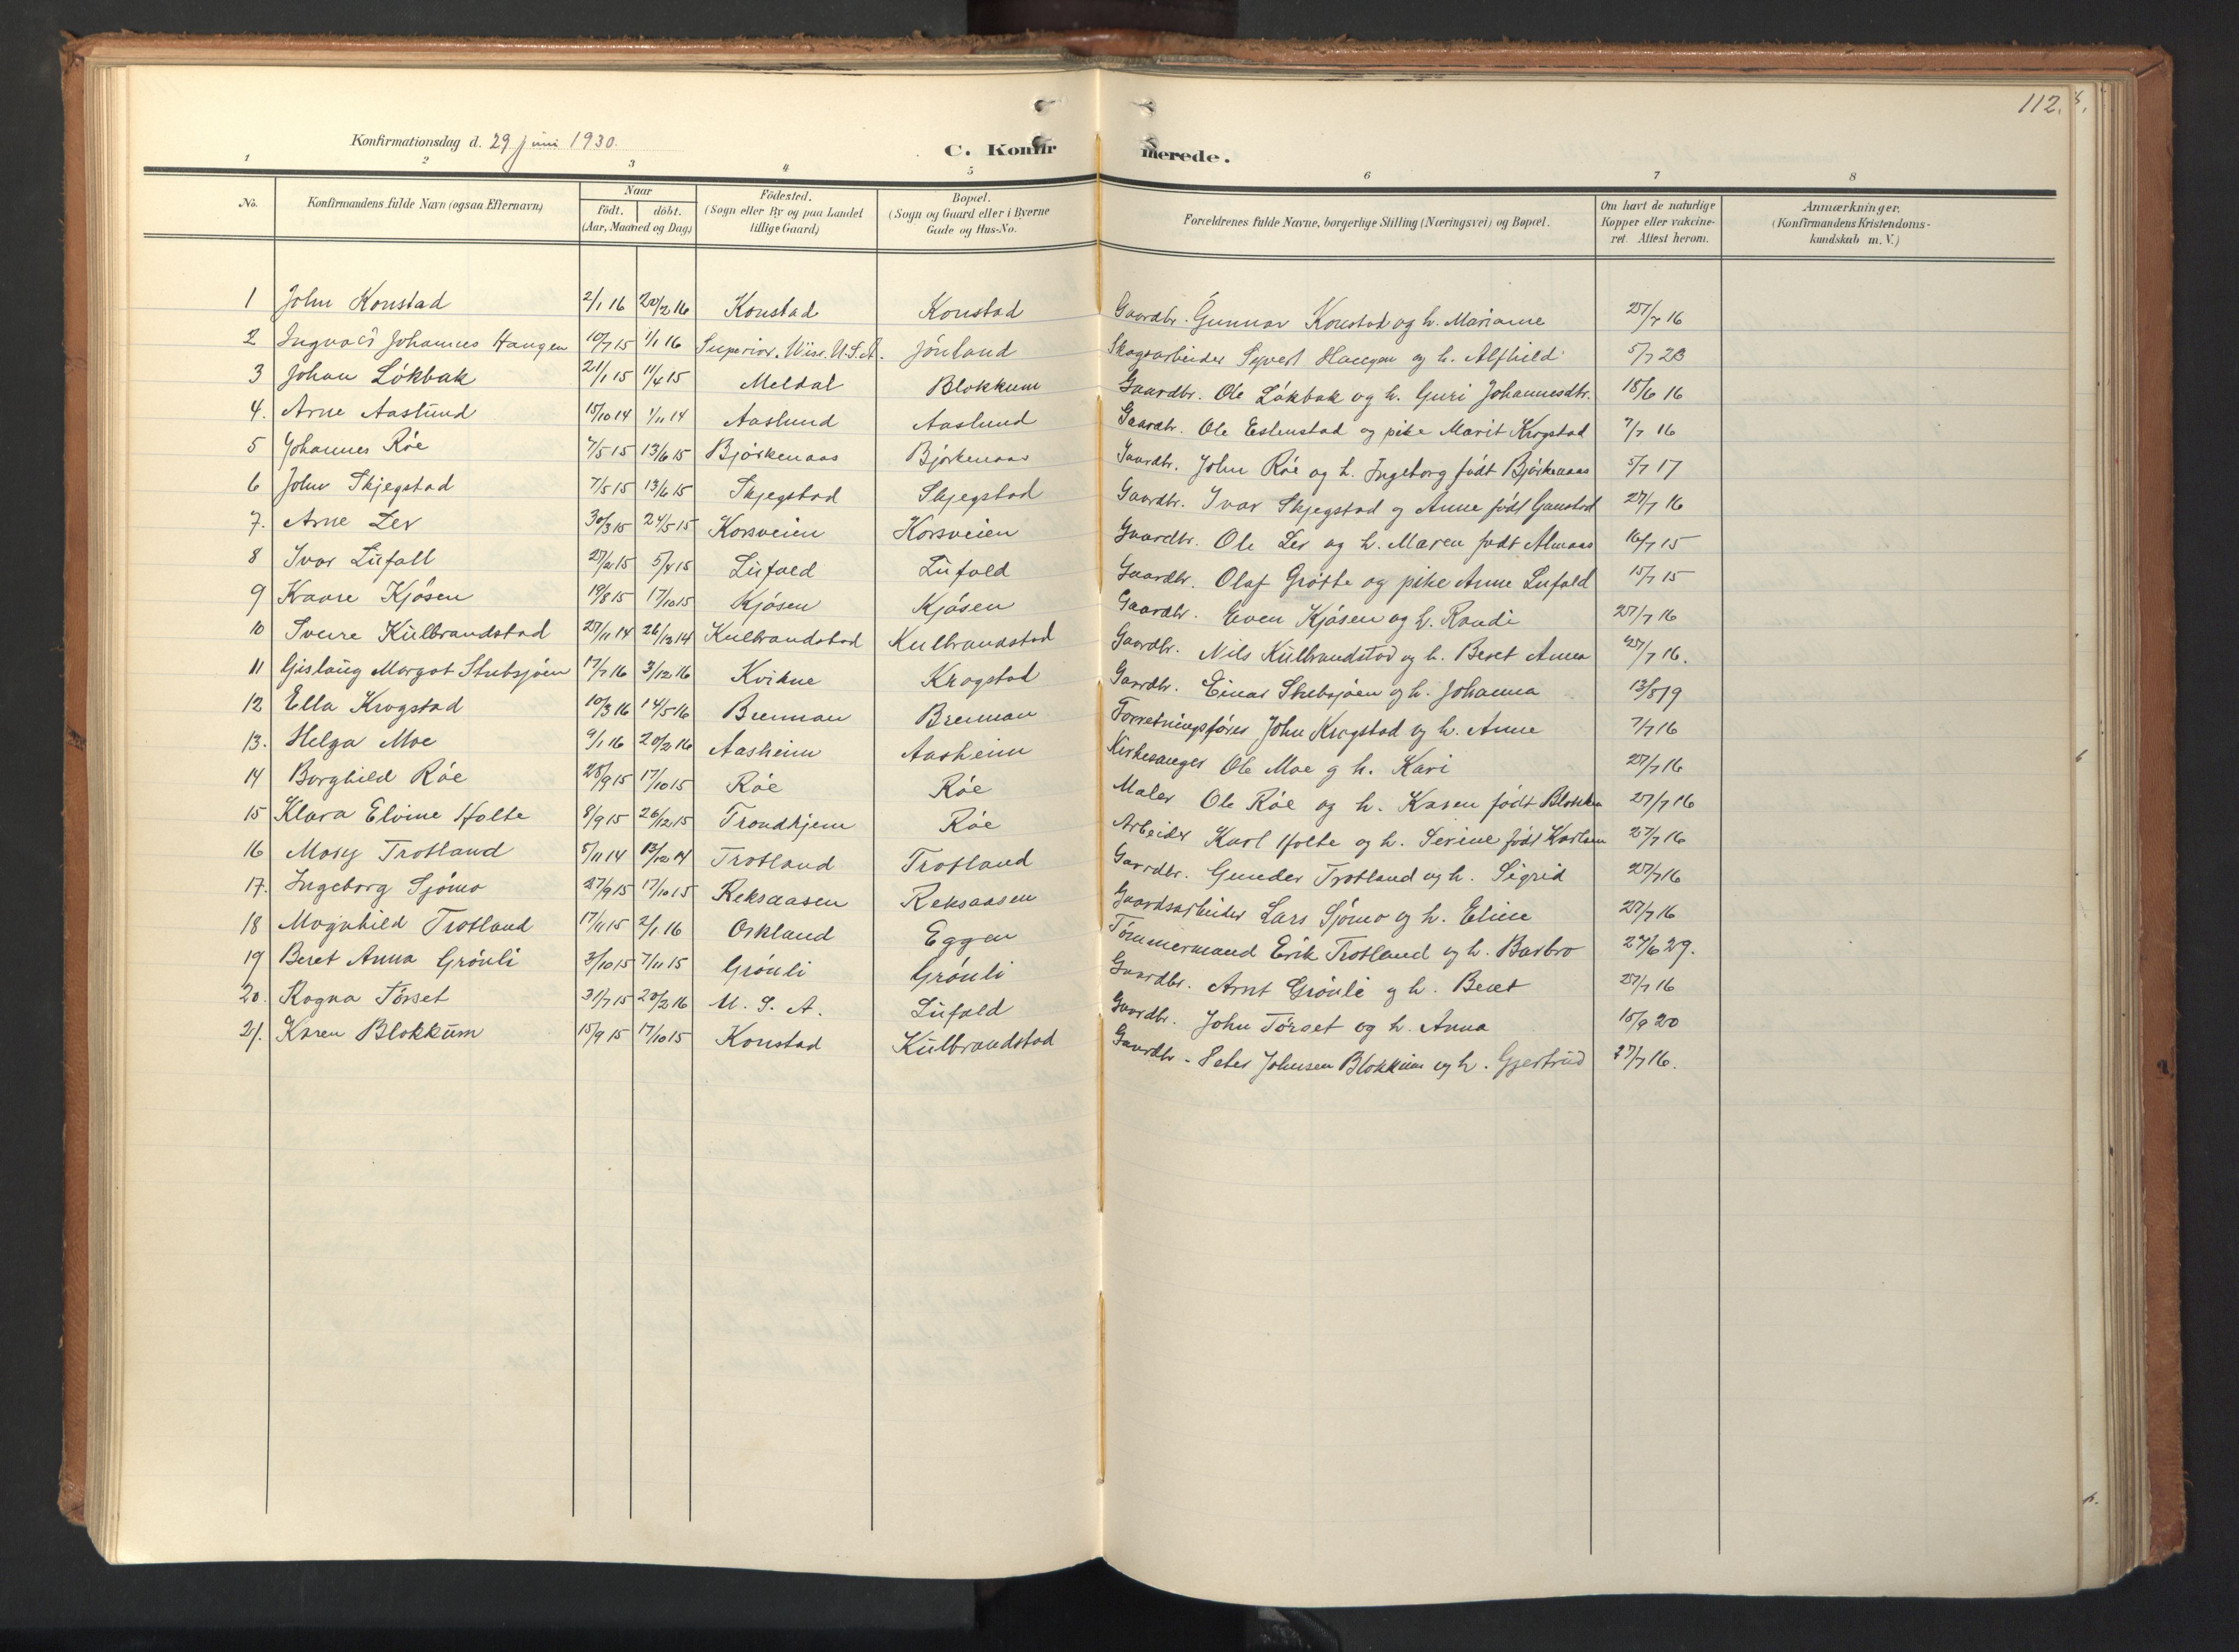 112.
Konfirmationsdag d. 29 juni 1930.
C. Konfirmerede.
1 2 3 4 5 6 7 8
No. Konfirmandens fulde Navn (ogsaa Efternavn) Naar födt. döbt. (Aar, Maaned og Dag) Födested. (Sogn eller By og paa Landet tillige Gaard) Bopæl. (Sogn og Gaard eller i Byerne Gade og Hus-No. Forældrenes fulde Navne, borgerlige Stilling (Næringsvei) og Bopæl. Om havt de naturlige Kopper eller vakcineret. Attest herom. Anmærkninger. (Konfirmandens Kristendomskundskab m. V.)
1 John Konstad 2/1 16 20/2 16 Konstad Konstad Gaardbr. Gunnar Konstad og h. Marianne 27/7 16
2 Ingvald Johannes Haugen 10/7 15 1/1 16 Superior, Wisc. U.S.A. Jönland Skogsarbeider Syvert Haugen og h. Alfhild 5/7 23
3 Johan Lökbak 21/1 15 11/4 15 Meldal Blokkum Gaardbr. Ole Lökbak og h. Guri Johannesdtr. 18/6 16
4. Arne Aaslund 15/10 14 1/11 14 Aaslund Aaslund Gaardbr. Ole Eslenstad og pike Marit Krogstad 7/7 16
5 Johannes Röe 7/5 15 13/6 15 Björkenaas Björkenaas Gaardbr. John Röe og h. Ingeborg födt Björkenaas 5/7 17
6 John Skjegstad 7/5 15 13/6 15 Skjegstad Skjegstad Gaardbr. Ivar Skjegstad og Anne födt Gaustad 27/7 16
7. Arne Ler 30/3 15 24/5 15 Korsveien Korsveien Gaardbr. Ole Ler og h. Maren födt Almaas 16/7 15
8 Ivar Lufall 27/2 15 5/4 15 Lufald Lufald Gaardbr. Olaf Grötte og pike Anne Lufald 15/7 15
9 Kaare Kjösen 19/8 15 17/10 15 Kjösen Kjösen Gaardbr. Even Kjösen og h. Randi 27/7 16
10 Sverre Kulbrandstad 27/11 14 26/12 14 Kulbrandstad Kulbrandstad Gaardbr. Nils Kulbrandstad og h. Beret Anna 27/7 16.
11 Gislaug Margot Stubsjöen 17/7 16 3/12 16 Kvikne Krogstad Gaardbr. Einar Stubsjöen og h. Johanna 13/8 19
12 Ella Krogstad 10/3 16 14/5 16 Brennan Brennan Forretningsförer John Krogstad og h. Anne 7/7 16
13. Helga Moe 9/1 16 20/2 16 Aasheim Aasheim Kirkesanger Ole Moe og h. Kari 27/7 16
14 Borghild Röe 28/9 15 17/10 15 Röe Röe Maler Ole Röe og h. Karen födt Blokkum 27/7 16
15 Klara Elvine Holte 8/9 15 26/12 15 Trondhjem Röe Arbeider Karl Holte og h. Serine födt Karlsen 27/7 16
16 Mary Trotland 5/11 14 13/12 14 Trotland Trotland Gaardbr. Gunder Trotland og h. Sigrid 27/7 16
17. Ingeborg Sjömo 27/9 15 17/10 15 Reksaasen Reksaasen Gaardsarbeider Lars Sjömo og h. Eline 27/7 16
18 Magnhild Trotland 17/11 15 2/1 16 Oskland Eggen Tömmermand Erik Trotland og h. Barbro 27/6 29.
19 Beret Anna Grönli 3/10 15 7/11 15 Grönli Grönli Gaardbr. Arnt Grönli og h. Beret 27/7 16
20. Ragna Törset 31/7 15 20/2 16 U. S. A. Lufald Gaardbr. John Törset og h. Anna 15/9 20
21. Karen Blokkum 15/9 15 17/10 15 Konstad Kulbrandstad Gaardbr. Peter Johnsen Blokkum og h. Gjertrud 27/7 16.